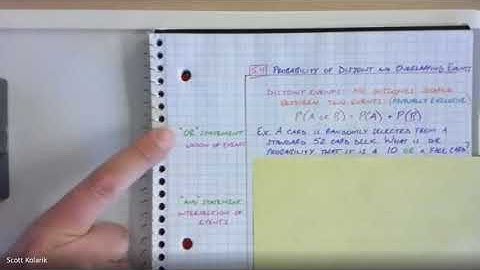 5.4 PROBABILITY OF DISJOINT AND OVERLAPPING EVENTS
DISJOINT EVENTS: NO OUTCOMES SHARED
BETWEEN TWO EVENTS (MUTUALLY EXCLUSIVE)
P(A OR B) = P(A) + P(B)
"OR" STATEMENT
UNION OF EVENTS
EX. A CARD IS RANDOMLY SELECTED FROM A
STANDARD 52 CARD DECK. WHAT IS
PROBABILITY THAT IT IS A 10 OR A FACE CARD?
"AND" STATEMENT
INTERSECTION OF
EVENTS
Scott Kolarik